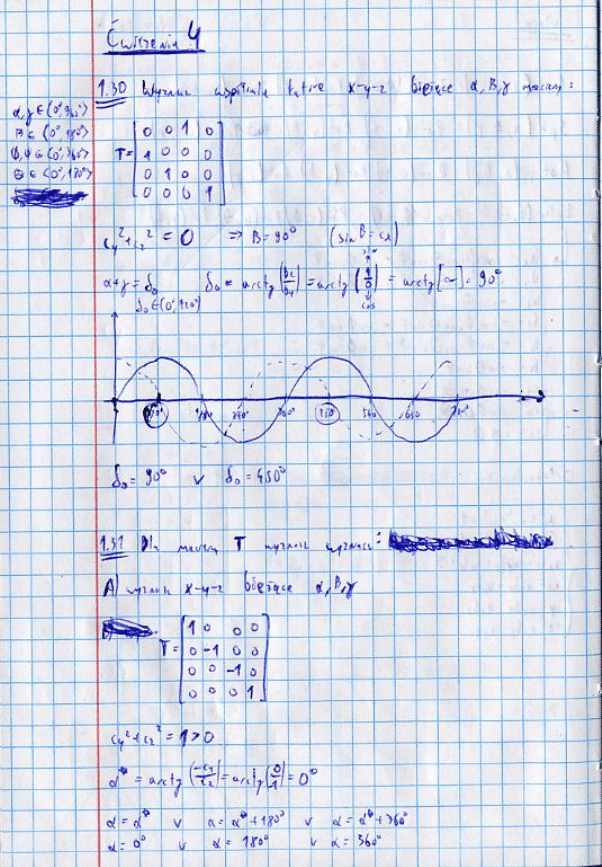 Ćwiczenia 4
1.30 Wyznacz współrzędne x-y-z bieżące α, B, γ macierzy:
α, γ ∈ <0°, 360°>
B ∈ <0°, 180°>
Φ, Ψ ∈ <0°, 360°>
Θ ∈ <0°, 180°>
T =
0 0 1 0
1 0 0 0
0 1 0 0
0 0 0 1
cy² + cz² = 0 ⇒ B = 90° (sin B = cx)
α + γ = δ₀ δ₀ = arctg (bz/by) = arctg (1/0) = arctg [∞] = 90°
δ₀ ∈ <0°, 720°>
90° 180 270° 360° 450 540 630 720°
δ₀ = 90° v δ₀ = 450°
1.31 Dla macierzy T wyznacz
A) wyznacz x-y-z bieżące α, B, γ
T =
1 0 0 0
0 -1 0 0
0 0 -1 0
0 0 0 1
cy² + cz² = 1 > 0
α* = arctg (-cy/cz) = arctg (0/1) = 0°
α = α* v α = α* + 180° v α = α* + 360°
α = 0° v α = 180° v α = 360°